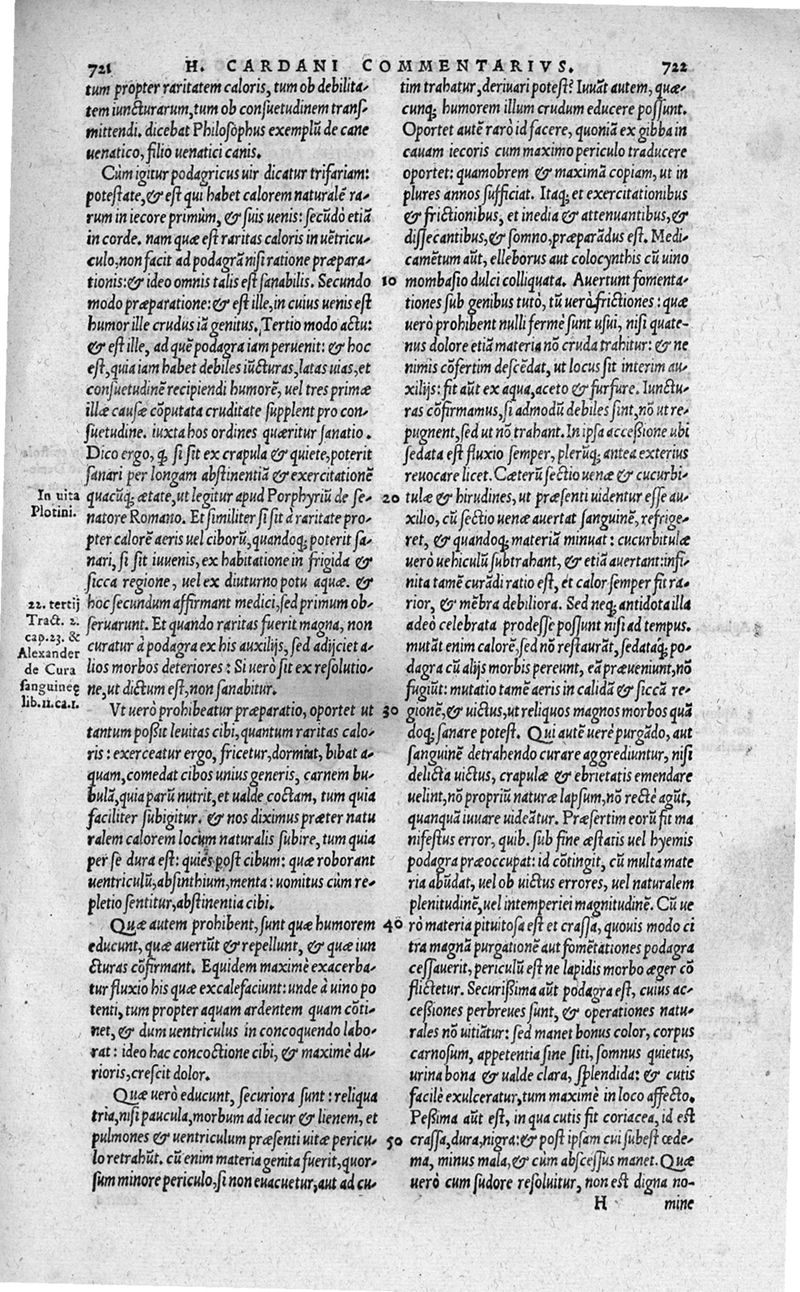 721 H. CARDANI COMMENTARIVS. 722
tum propter raritatem caloris, tum ob debilita-
tem iuncturarum, tum ob consuetudinem trans-
mittendi. dicebat Philosophus exemplũ de cane
uenatico, filio uenatici canis.
Cùm igitur podagricus uir dicatur trifariam:
potestate, & est qui habet calorem naturalẽ ra-
rum in iecore primùm, & suis uenis: secũdò etiã
in corde. nam quæ est raritas caloris in uẽtricu-
culo, non facit ad podagrã nisi ratione præpara-
tionis: & ideo omnis talis est sanabilis. Secundo
modo præparatione: & est ille, in cuius uenis est
humor ille crudus iã genitus. Tertio modo actu:
& est ille, ad quẽ podagra iam peruenit: & hoc
est, quia iam habet debiles iũcturas, latas uias, et
consuetudinẽ recipiendi humorẽ, uel tres primæ
illæ causæ cõputata cruditate supplent pro con-
suetudine. iuxta hos ordines quæritur sanatio.
Dico ergo, q̃ si sit ex crapula & quiete, poterit
sanari per longam abstinentiã & exercitationẽ
quacũq; ætate, ut legitur apud Porphyriũ de se-
natore Romano. Et similiter si sit à raritate pro-
pter calorẽ aeris uel ciborũ, quandoq; poterit sa-
nari, si sit iuuenis, ex habitatione in frigida &
sicca regione, uel ex diuturno potu aquæ. &
hoc secundum affirmant medici, sed primum ob-
seruarunt. Et quando raritas fuerit magna, non
curatur à podagra ex his auxilijs, sed adijciet a-
lios morbos deteriores: Si uerò sit ex resolutio-
ne, ut dictum est, non sanabitur.
Vt uerò prohibeatur præparatio, oportet ut
tantum possit leuitas cibi, quantum raritas calo-
ris: exerceatur ergo, fricetur, dormiat, bibat a-
quam, comedat cibos unius generis, carnem bu-
bulã, quia parũ nutrit, et ualde coctam, tum quia
faciliter subigitur. & nos diximus præter natu
ralem calorem locum naturalis subire, tum quia
per se dura est: quies post cibum: quæ roborant
uentriculũ, absinthium, menta: uomitus cùm re-
pletio sentitur, abstinentia cibi.
Quæ autem prohibent, sunt quæ humorem
educunt, quæ auertũt & repellunt, & quæ iun
cturas cõfirmant. Equidem maximè exacerba-
tur fluxio his quæ excalefaciunt: unde à uino po
tenti, tum propter aquam ardentem quam cõti-
net, & dum uentriculus in concoquendo labo-
rat: ideo hac concoctione cibi, & maximè du-
rioris, crescit dolor.
Quæ uerò educunt, securiora sunt: reliqua
tria, nisi paucula, morbum ad iecur & lienem, et
pulmones & uentriculum præsenti uitæ pericu-
lo retrahũt. cũ enim materia genita fuerit, quor-
sum minore periculo, si non euacuetur, aut ad cu-
In uita
Plotini.
22. tertij
Tract. 2.
cap. 23. &
Alexander
de Cura
sanguineę
lib. 11. ca. 1.
10
20
30
40
50
tim trahatur, deriuari potest? Iuuãt autem, quæ-
cunq; humorem illum crudum educere possunt.
Oportet autẽ rarò id facere, quoniã ex gibba in
cauam iecoris cum maximo periculo traducere
oportet: quamobrem & maximã copiam, ut in
plures annos sufficiat. Itaq; et exercitationibus
& frictionibus, et inedia & attenuantibus, &
dissecantibus, & somno, præparãdus est. Medi-
camẽtum aũt, elleborus aut colocynthis cũ uino
mombasio dulci colliquata. Auertunt fomenta-
tiones sub genibus tutò, tũ uerò frictiones: quæ
uerò prohibent nulli fermè sunt usui, nisi quate-
nus dolore etiã materia nõ cruda trahitur: & ne
nimis cõfertim descẽdat, ut locus sit interim au-
xilijs: fit aũt ex aqua, aceto & furfure. Iunctu-
ras cõfirmamus, si admodũ debiles sint, nõ ut re-
pugnent, sed ut nõ trahant. In ipsa accessione ubi
sedata est fluxio semper, plerũq; antea exterius
reuocare licet. Cæterũ sectio uenæ & cucurbi-
tulæ & hirudines, ut præsenti uidentur esse au-
xilio, cũ sectio uenæ auertat sanguinẽ, refrige-
ret, & quandoq; materiã minuat: cucurbitulæ
uerò uehiculũ subtrahant, & etiã auertant: infi-
nita tamẽ curãdi ratio est, et calor semper fit ra-
rior, & mẽbra debiliora. Sed neq; antidota illa
adeò celebrata prodesse possunt nisi ad tempus.
mutãt enim calorẽ, sed nõ restaurãt, sedataq; po-
dagra cũ alijs morbis pereunt, eã præueniunt, nõ
fugiũt: mutatio tamẽ aeris in calidã & siccã re-
gionẽ, & uictus, ut reliquos magnos morbos quã
doq; sanare potest. Qui autẽ uerè purgãdo, aut
sanguinẽ detrahendo curare aggrediuntur, nisi
delicta uictus, crapulæ & ebrietatis emendare
uelint, nõ propriũ naturæ lapsum, nõ rectè agũt,
quanquã iuuare uideatur. Præsertim eorũ fit ma
nifestus error, quib. sub fine æstatis uel hyemis
podagra præoccupat: id cõtingit, cũ multa mate
ria abũdat, uel ob uictus errores, uel naturalem
plenitudinẽ, uel intemperiei magnitudinẽ. Cũ ue
rò materia pituitosa est et crassa, quouis modo ci
tra magnã purgationẽ aut fomẽtationes podagra
cessauerit, periculũ est ne lapidis morbo æger cõ
flictetur. Securissima aũt podagra est, cuius ac-
cessiones perbreues sunt, & operationes natu-
rales nõ uitiãtur: sed manet bonus color, corpus
carnosum, appetentia sine siti, somnus quietus,
urina bona & ualde clara, splendida: & cutis
facilè exulceratur, tum maximè in loco affecto.
Pessima aũt est, in qua cutis fit coriacea, id est
crassa, dura, nigra: & post ipsam cui subest œde-
ma, minus mala, & cùm abscessus manet. Quæ
uerò cum sudore resoluitur, non est digna no-
H mine